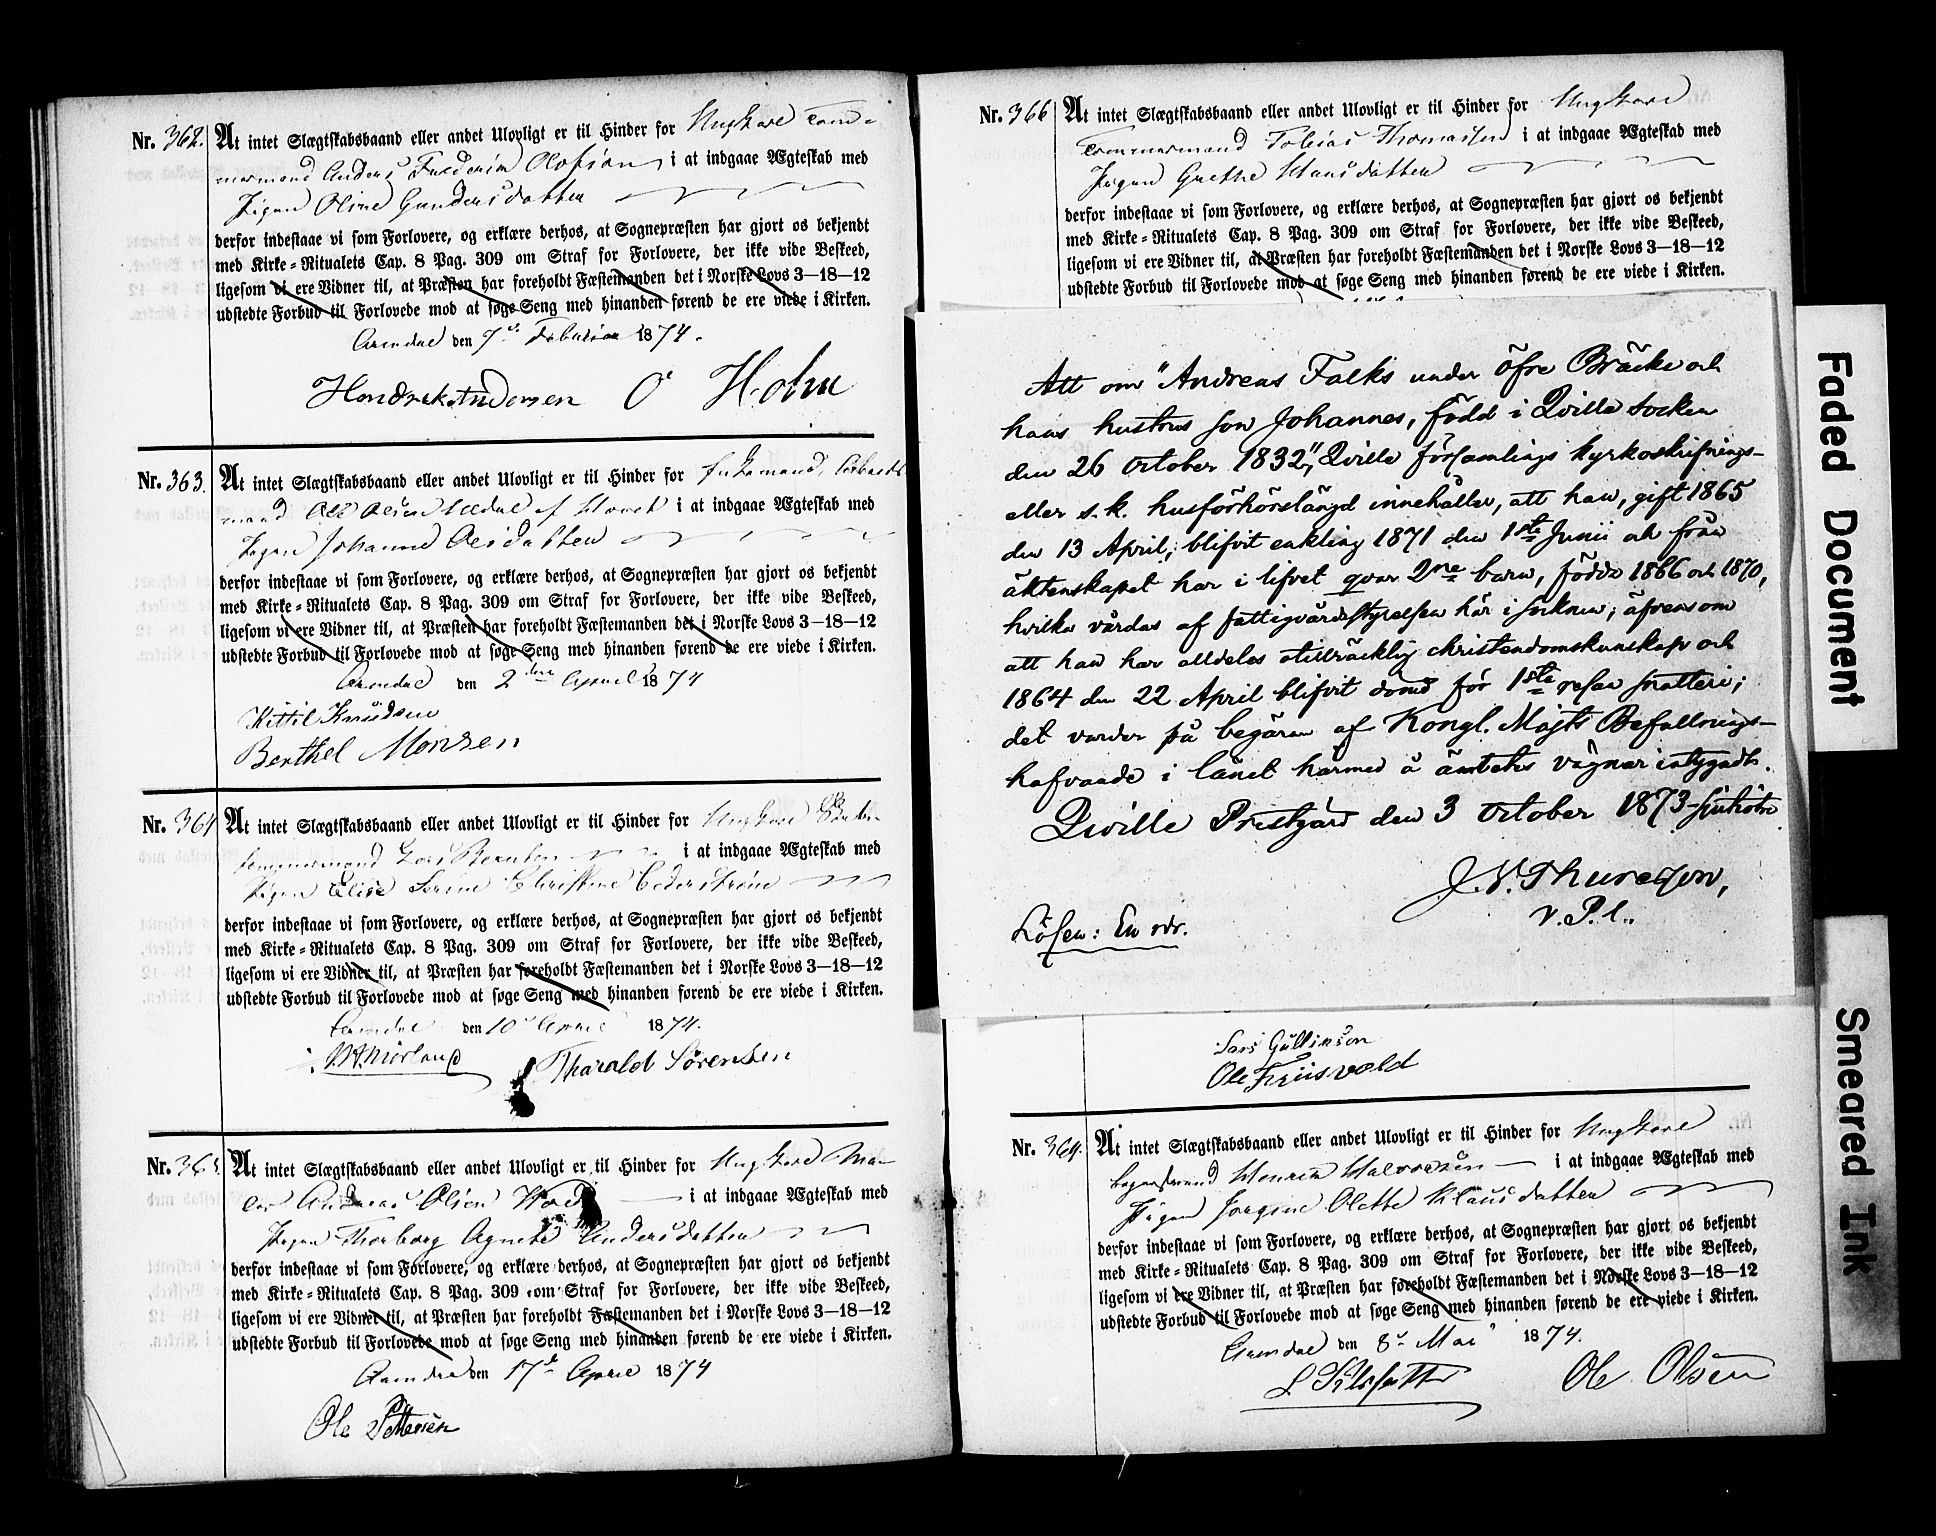 Nr. 362. At intet Slægtskabsbaand eller andet Ulovligt er til Hinder for Ungkarl Tøm-
mermand Anders Frederik Olofson i at indgaae Ægteskab med
Pigen Oline Gundersdatter
derfor indestaae vi som Forlovere, og erklære derhos, at Sognepræsten har gjort os bekjendt
med Kirke-Ritualets Cap. 8 Pag. 309 om Straf for Forlovere, der ikke vide Beskeed,
ligesom vi ere Vidner til, at Præsten har foreholdt Fæstemanden det i Norske Lovs 3—18—12
udstedte Forbud til Forlovede mod at søge Seng med hinanden førend de ere viede i Kirken.
Arendal den 7de Februar 1874.
Hendrik Andersen O Holm
Nr. 363. At intet Slægtskabsbaand eller andet Ulovligt er til Hinder for Enkemand, Arbeids
mand Ole Olsen af i at indgaae Ægteskab med
Pigen Johanne Olsdatter
derfor indestaae vi som Forlovere, og erklære derhos, at Sognepræsten har gjort os bekjendt
med Kirke-Ritualets Cap. 8 Pag. 309 om Straf for Forlovere, der ikke vide Beskeed,
ligesom vi ere Vidner til, at Præsten har foreholdt Fæstemanden det i Norske Lovs 3—18—12
udstedte Forbud til Forlovede mod at søge Seng med hinanden førend de ere viede i Kirken.
Arendal den 2den April 1874
Kittil Knudsen
Berthel Monsen
Nr. 364 At intet Slægtskabsbaand eller andet Ulovligt er til Hinder for Ungkarl
Lars Berntsen i at indgaae Ægteskab med
Pigen Elise Serine Christine Cederstrøm
derfor indestaae vi som Forlovere, og erklære derhos, at Sognepræsten har gjort os bekjendt
med Kirke-Ritualets Cap. 8 Pag. 309 om Straf for Forlovere, der ikke vide Beskeed,
ligesom vi ere Vidner til, at Præsten har foreholdt Fæstemanden det i Norske Lovs 3—18—12
udstedte Forbud til Forlovede mod at søge Seng med hinanden førend de ere viede i Kirken.
Arendal den 10de April 1874.
Tharald Sørensen
Nr. 365. At intet Slægtskabsbaand eller andet Ulovligt er til Hinder for Ungkarl Ma-
ler Andreas Olsen i at indgaae Ægteskab med
Pigen Thorborg Agnete Andersdatter
derfor indestaae vi som Forlovere, og erklære derhos, at Sognepræsten har gjort os bekjendt
med Kirke-Ritualets Cap. 8 Pag. 309 om Straf for Forlovere, der ikke vide Beskeed,
ligesom vi ere Vidner til, at Præsten har foreholdt Fæstemanden det i Norske Lovs 3—18—12
udstedte Forbud til Forlovede mod at søge Seng med hinanden førend de ere viede i Kirken.
Arendal den 17de April 1874
Ole Pettersen
Nr. 366 At intet Slægtskabsbaand eller andet Ulovligt er til Hinder for Ungkarl
Tømmermand Tobias Thomassen i at indgaae Ægteskab med
Pigen Grethe Hansdatter
derfor indestaae vi som Forlovere, og erklære derhos, at Sognepræsten har gjort os bekjendt
med Kirke-Ritualets Cap. 8 Pag. 309 om Straf for Forlovere, der ikke vide Beskeed,
ligesom vi ere Vidner til, at Præsten har foreholdt Fæstemanden det i Norske Lovs 3—18—12
udstedte Forbud til Forlovede mod at søge Seng med hinanden førend de ere viede i Kirken.
Att om "Andreas Falks under öfre Bräcke och
hans hustrus son Johannes, född i Qville socken
den 26 October 1832", Qville församlings kyrkoskrifnings-
eller s.k. husförhörslängd innehåller, att han, gift 1865
den 13 April, blifvit enkling 1871 den 1ste Junii och från
äktenskapet har i lifvet qvar 2ne barn, födda 1866 och 1870,
hvilka vårdas af fattigvårdsstyrelsen här i socknen; äfvensom
att han har alldeles otillräcklig christendomskunskap och
1864 den 22 April blifvit dömd för 1sta resan snatteri;
det varder på begäran af Kongl. Majts Befallnings-
hafvande i länet härmed å ämbetes vägnar intygadt.
Qville Prestgård den 3 October 1873
J. V. Thuresson,
v. P. l..
Lösen: En rdr.
Lars Gullikson
Ole Friisvold
Nr. 369. At intet Slægtskabsbaand eller andet Ulovligt er til Hinder for Ungkarl
Henrik Halvorsen i at indgaae Ægteskab med
Pigen Jorgine Olette Klausdatter
derfor indestaae vi som Forlovere, og erklære derhos, at Sognepræsten har gjort os bekjendt
med Kirke-Ritualets Cap. 8 Pag. 309 om Straf for Forlovere, der ikke vide Beskeed,
ligesom vi ere Vidner til, at Præsten har foreholdt Fæstemanden det i Norske Lovs 3—18—12
udstedte Forbud til Forlovede mod at søge Seng med hinanden førend de ere viede i Kirken.
Arendal den 8de Mai 1874.
Ole Olsen
Faded Document
Smeared Ink